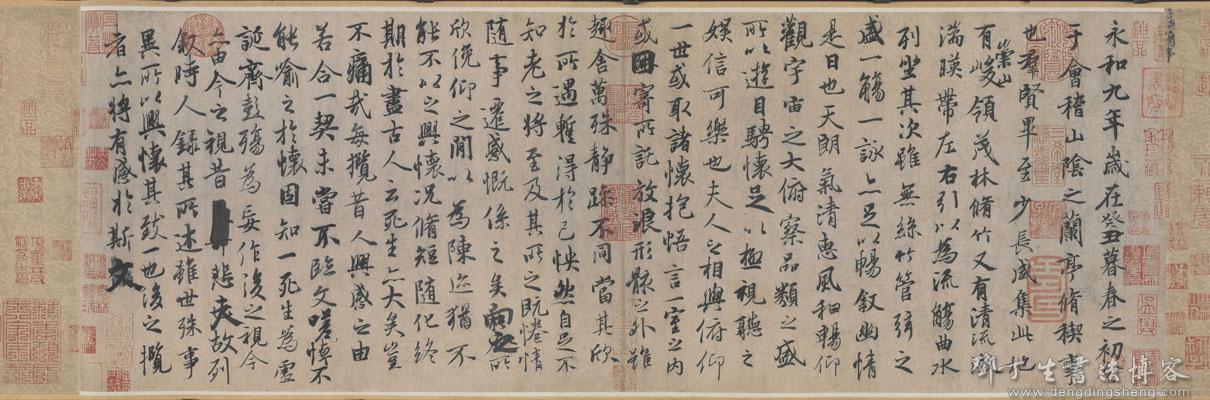 永和九年歲在癸丑暮春之初會
于會稽山陰之蘭亭脩禊事
也羣賢畢至少長咸集此地
有崇山峻領茂林脩竹又有清流激
湍暎帶左右引以為流觴曲水
列坐其次雖無絲竹管弦之
盛一觴一詠亦足以暢敘幽情
是日也天朗氣清惠風和暢仰
觀宇宙之大俯察品類之盛
所以遊目騁懷足以極視聽之
娛信可樂也夫人之相與俯仰
一世或取諸懷抱悟言一室之內
或因寄所託放浪形骸之外雖
趣舍萬殊靜躁不同當其欣
於所遇蹔得於己怏然自足不
知老之將至及其所之既惓情
隨事遷感慨係之矣向之所
欣俛仰之閒以為陳迹猶不
能不以之興懷況脩短隨化終
期於盡古人云死生亦大矣豈
不痛哉每攬昔人興感之由
若合一契未嘗不臨文嗟悼不
能喻之於懷固知一死生為虛
誕齊彭殤為妄作後之視今
亦由今之視昔悲夫故列
敘時人錄其所述雖世殊事
異所以興懷其致一也後之攬
者亦將有感於斯文
鄧丁生書法博客
www.dengdingsheng.com